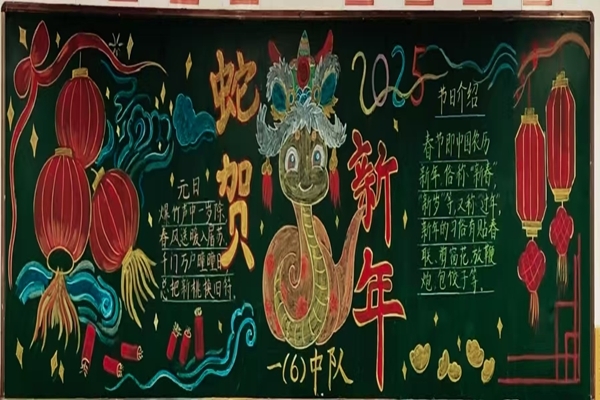 蛇贺
新年
2025
元日
爆竹声中一岁除,
春风送暖入屠苏.
千门万户曈曈日,
总把新桃换旧符.
节日介绍
春节即中国农历
新年,俗称"新春",
"新岁"等,又称"过年",
新年的习俗有贴春
联、剪窗花、放鞭
炮、包饺子等。
一(6)中队